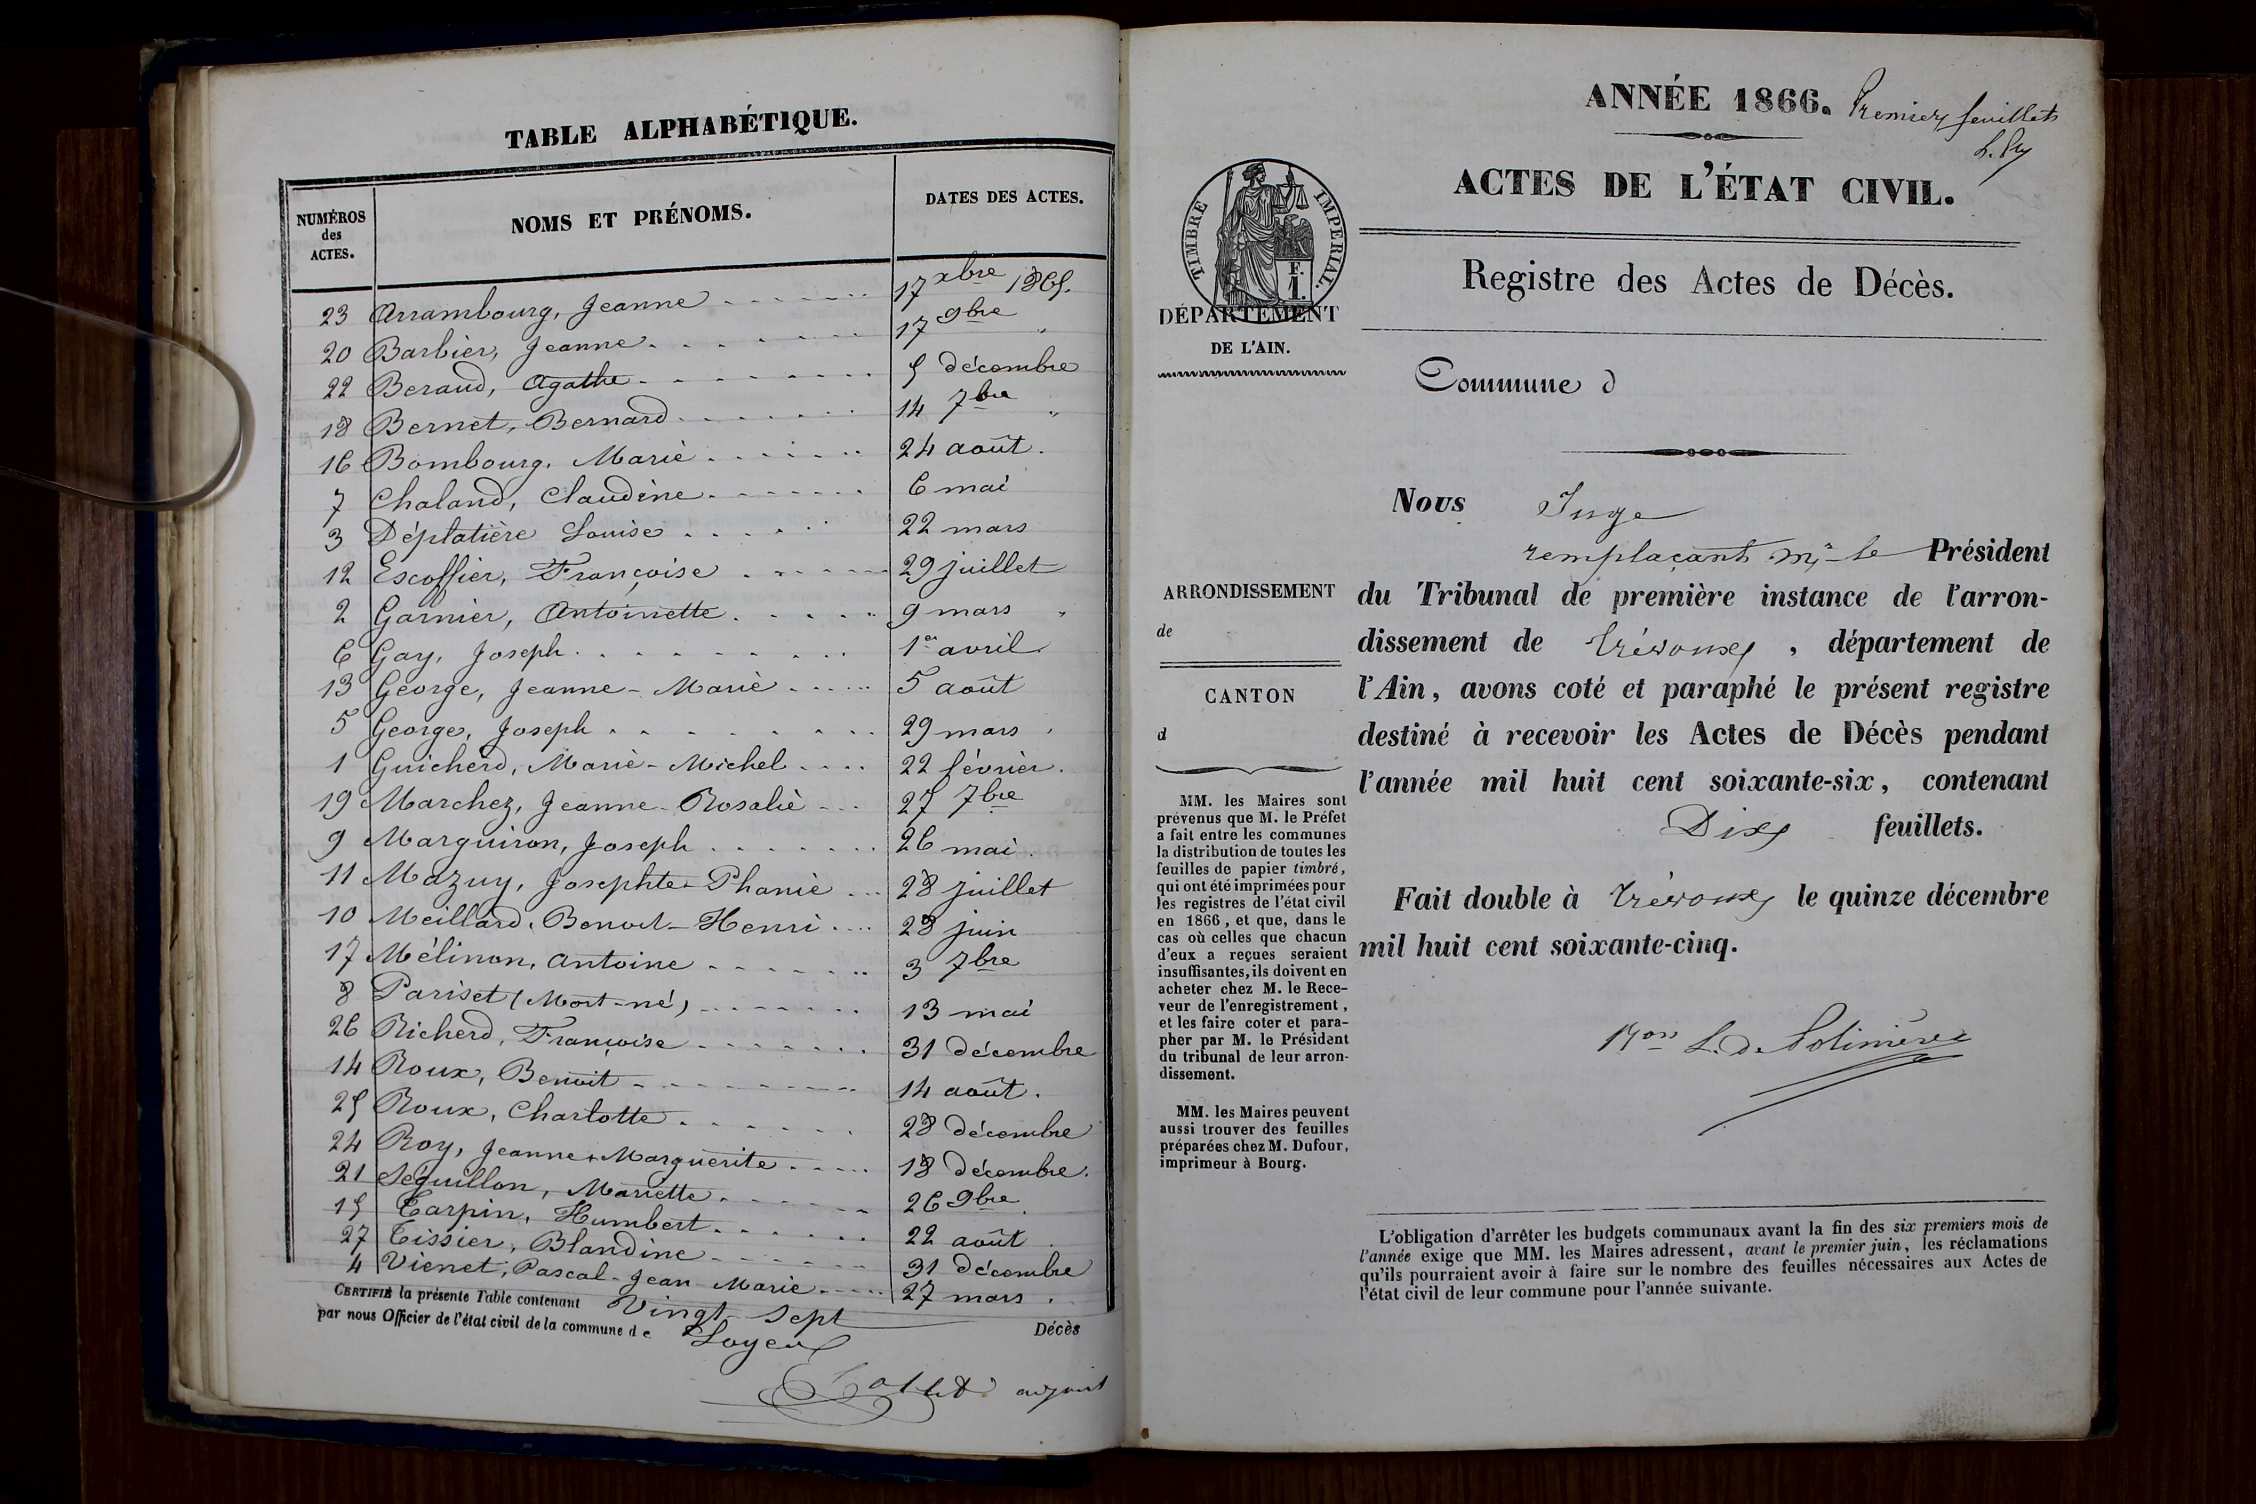 TABLE ALPHABÉTIQUE.
NUMÉROS des ACTES.
NOMS ET PRÉNOMS.
DATES DES ACTES.
23 Arrambourg, Jeanne 17 xbre 1865.
20 Barbier, Jeanne 17 9bre "
22 Beraud, Agathe 5 décembre
18 Bernet, Bernard 14 7bre "
16 Bombourg, Marie 24 août.
7 Chaland, Claudine 6 mai
3 Déplatière Louise 22 mars
12 Escoffier, Françoise 29 juillet
2 Garnier, Antoinette 9 mars "
6 Gay, Joseph 1er avril
13 George, Jeanne-Marie 5 août
5 George, Joseph 29 mars
1 Guicherd, Marie-Michel 22 février.
19 Marchez, Jeanne-Rosalie 27 7bre
9 Marguiron, Joseph 26 mai
11 Mazuy, Josephte-Phanie 28 juillet
10 Meillard, Benoit-Henri 28 juin
17 Mélinon, Antoine 3 7bre
8 Pariset (Mort-né) 13 mai
26 Richerd, Françoise 31 décembre
14 Roux, Benoit 14 août.
25 Roux, Charlotte 28 décembre
24 Roy, Jeanne-Marguerite 18 décembre.
21 Séguillon, Mariette 26 9bre
15 Tarpin, Humbert 22 août
27 Tissier, Blandine 31 décembre
4 Vienet, Pascal-Jean Marie 27 mars
CERTIFIÉ la présente Table contenant Vingt-sept Décès
par nous Officier de l'état civil de la commune de Loyes
adjoint
ANNÉE 1866. Premier feuillet
ACTES DE L'ÉTAT CIVIL.
TIMBRE IMPERIAL.
F. 1.
Registre des Actes de Décès.
DÉPARTEMENT
DE L'AIN.
Commune d
ARRONDISSEMENT
de
CANTON
d
Nous Juge
remplaçant Mr le Président
du Tribunal de première instance de l'arron-
dissement de Trévoux, département de
l'Ain, avons coté et paraphé le présent registre
destiné à recevoir les Actes de Décès pendant
l'année mil huit cent soixante-six, contenant
Dix feuillets.
Fait double à Trévoux le quinze décembre
mil huit cent soixante-cinq.
MM. les Maires sont
prévenus que M. le Préfet
a fait entre les communes
la distribution de toutes les
feuilles de papier timbré,
qui ont été imprimées pour
les registres de l'état civil
en 1866, et que, dans le
cas où celles que chacun
d'eux a reçues seraient
insuffisantes, ils doivent en
acheter chez M. le Rece-
veur de l'enregistrement,
et les faire coter et para-
pher par M. le Président
du tribunal de leur arron-
dissement.
MM. les Maires peuvent
aussi trouver des feuilles
préparées chez M. Dufour,
imprimeur à Bourg.
L'obligation d'arrêter les budgets communaux avant la fin des six premiers mois de
l'année exige que MM. les Maires adressent, avant le premier juin, les réclamations
qu'ils pourraient avoir à faire sur le nombre des feuilles nécessaires aux Actes de
l'état civil de leur commune pour l'année suivante.